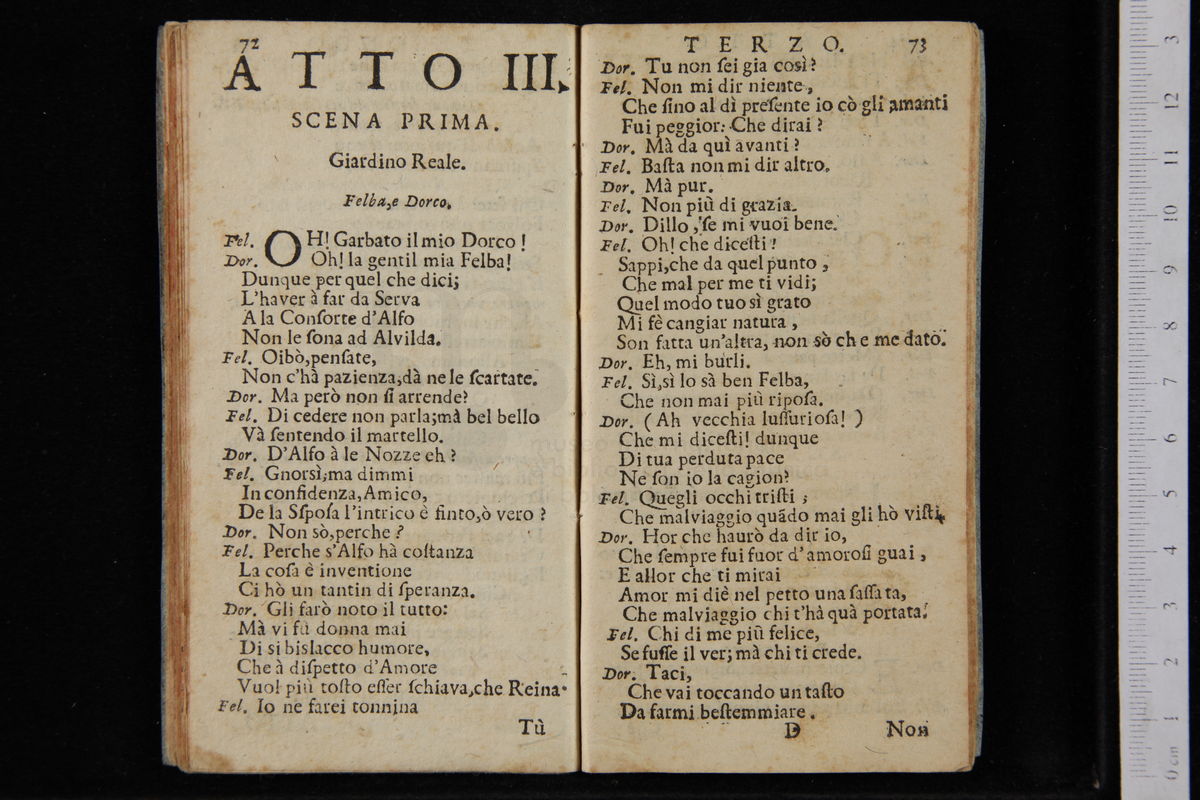 72
ATTO III.
SCENA PRIMA.
Giardino Reale.
Felba, e Dorco.
Fel. OH! Garbato il mio Dorco !
Dor. Oh! la gentil mia Felba!
Dunque per quel che dici;
L'haver à far da Serva
A la Conſorte d'Alfo
Non le ſona ad Alvilda.
Fel. Oibò, penſate,
Non c'hà pazienza, dà ne le ſcartate.
Dor. Ma però non ſi arrende?
Fel. Di cedere non parla; mà bel bello
Và ſentendo il martello.
Dor. D'Alfo à le Nozze eh ?
Fel. Gnorsì; ma dimmi
In confidenza, Amico,
De la Sſpoſa l'intrico è finto, ò vero ?
Dor. Non sò, perche ?
Fel. Perche s'Alfo hà coſtanza
La coſa è inventione
Ci hò un tantin di ſperanza.
Dor. Gli farò noto il tutto:
Mà vi fù donna mai
Di si bislacco humore,
Che à diſpetto d'Amore
Vuol più toſto eſſer ſchiava, che Reina.
Fel. Io ne farei tonnina
Tù
TERZO. 73
Dor. Tu non ſei gia così ?
Fel. Non mi dir niente,
Che ſino al dì preſente io cò gli amanti
Fui peggior: Che dirai ?
Dor. Mà da quì avanti ?
Fel. Baſta non mi dir altro.
Dor. Mà pur.
Fel. Non più di grazia.
Dor. Dillo, ſe mi vuoi bene.
Fel. Oh! che diceſti !
Sappi, che da quel punto ,
Che mal per me ti vidi;
Quel modo tuo sì grato
Mi fè cangiar natura ,
Son fatta un'altra, non sò che me dato.
Dor. Eh, mi burli.
Fel. Sì, sì lo sà ben Felba,
Che non mai più ripoſa.
Dor. (Ah vecchia luſſurioſa! )
Che mi diceſti! dunque
Di tua perduta pace
Ne ſon io la cagion?
Fel. Quegli occhi triſti ;
Che malviaggio quãdo mai gli hò viſti.
Dor. Hor che haurò da dir io,
Che ſempre fui fuor d'amoroſi guai ,
E allor che ti mirai
Amor mi diè nel petto una ſaſſata,
Che malviaggio chi t'hà quà portata!
Fel. Chi di me più felice,
Se fuſſe il ver; mà chi ti crede.
Dor. Taci,
Che vai toccando un taſto
Da farmi beſtemmiare .
D Non